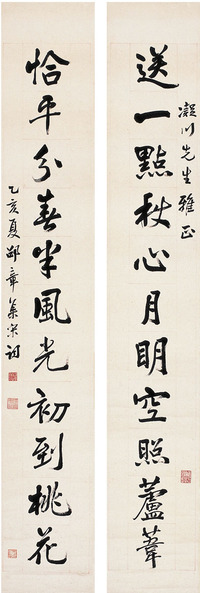 凝川先生雅正
送一點秋心月明空照蘆葦
恰平分春半風光初到桃花
乙亥夏邵章集宋詞